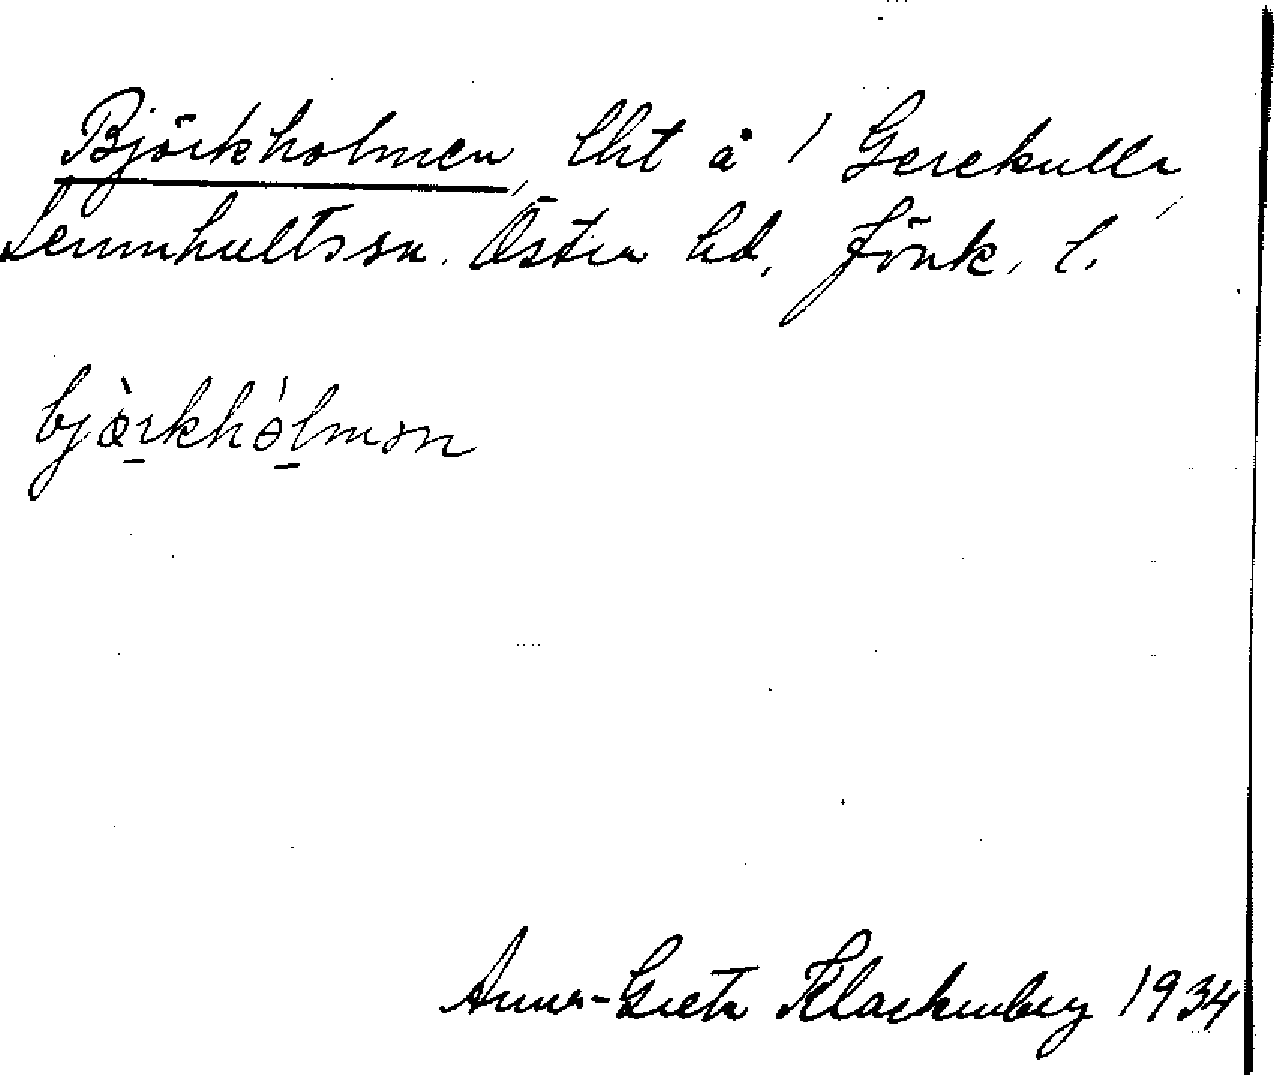 Björkholmen, lht å 1 Gerekulla,
Lemnhults sn. Östra hd, Jönk. l.
bjö̀rkhólmən
Anna-Greta Klackenberg 1934